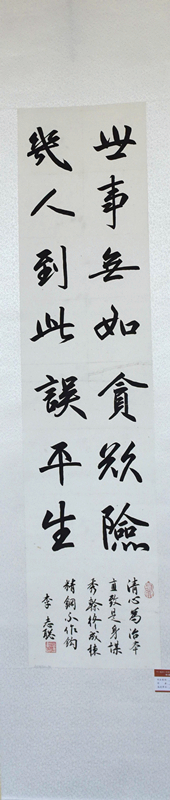 世事無如貪欲險
幾人到此誤平生
清心為治本
直道是身謀
秀幹終成棟
精鋼不作鈎
李志聪